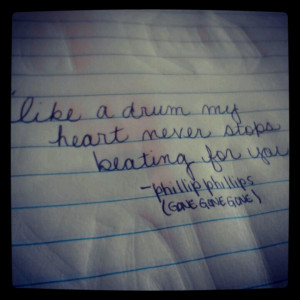 "like a drum my
heart never stops
beating for you
-phillip phillips
(GONE GONE GONE)